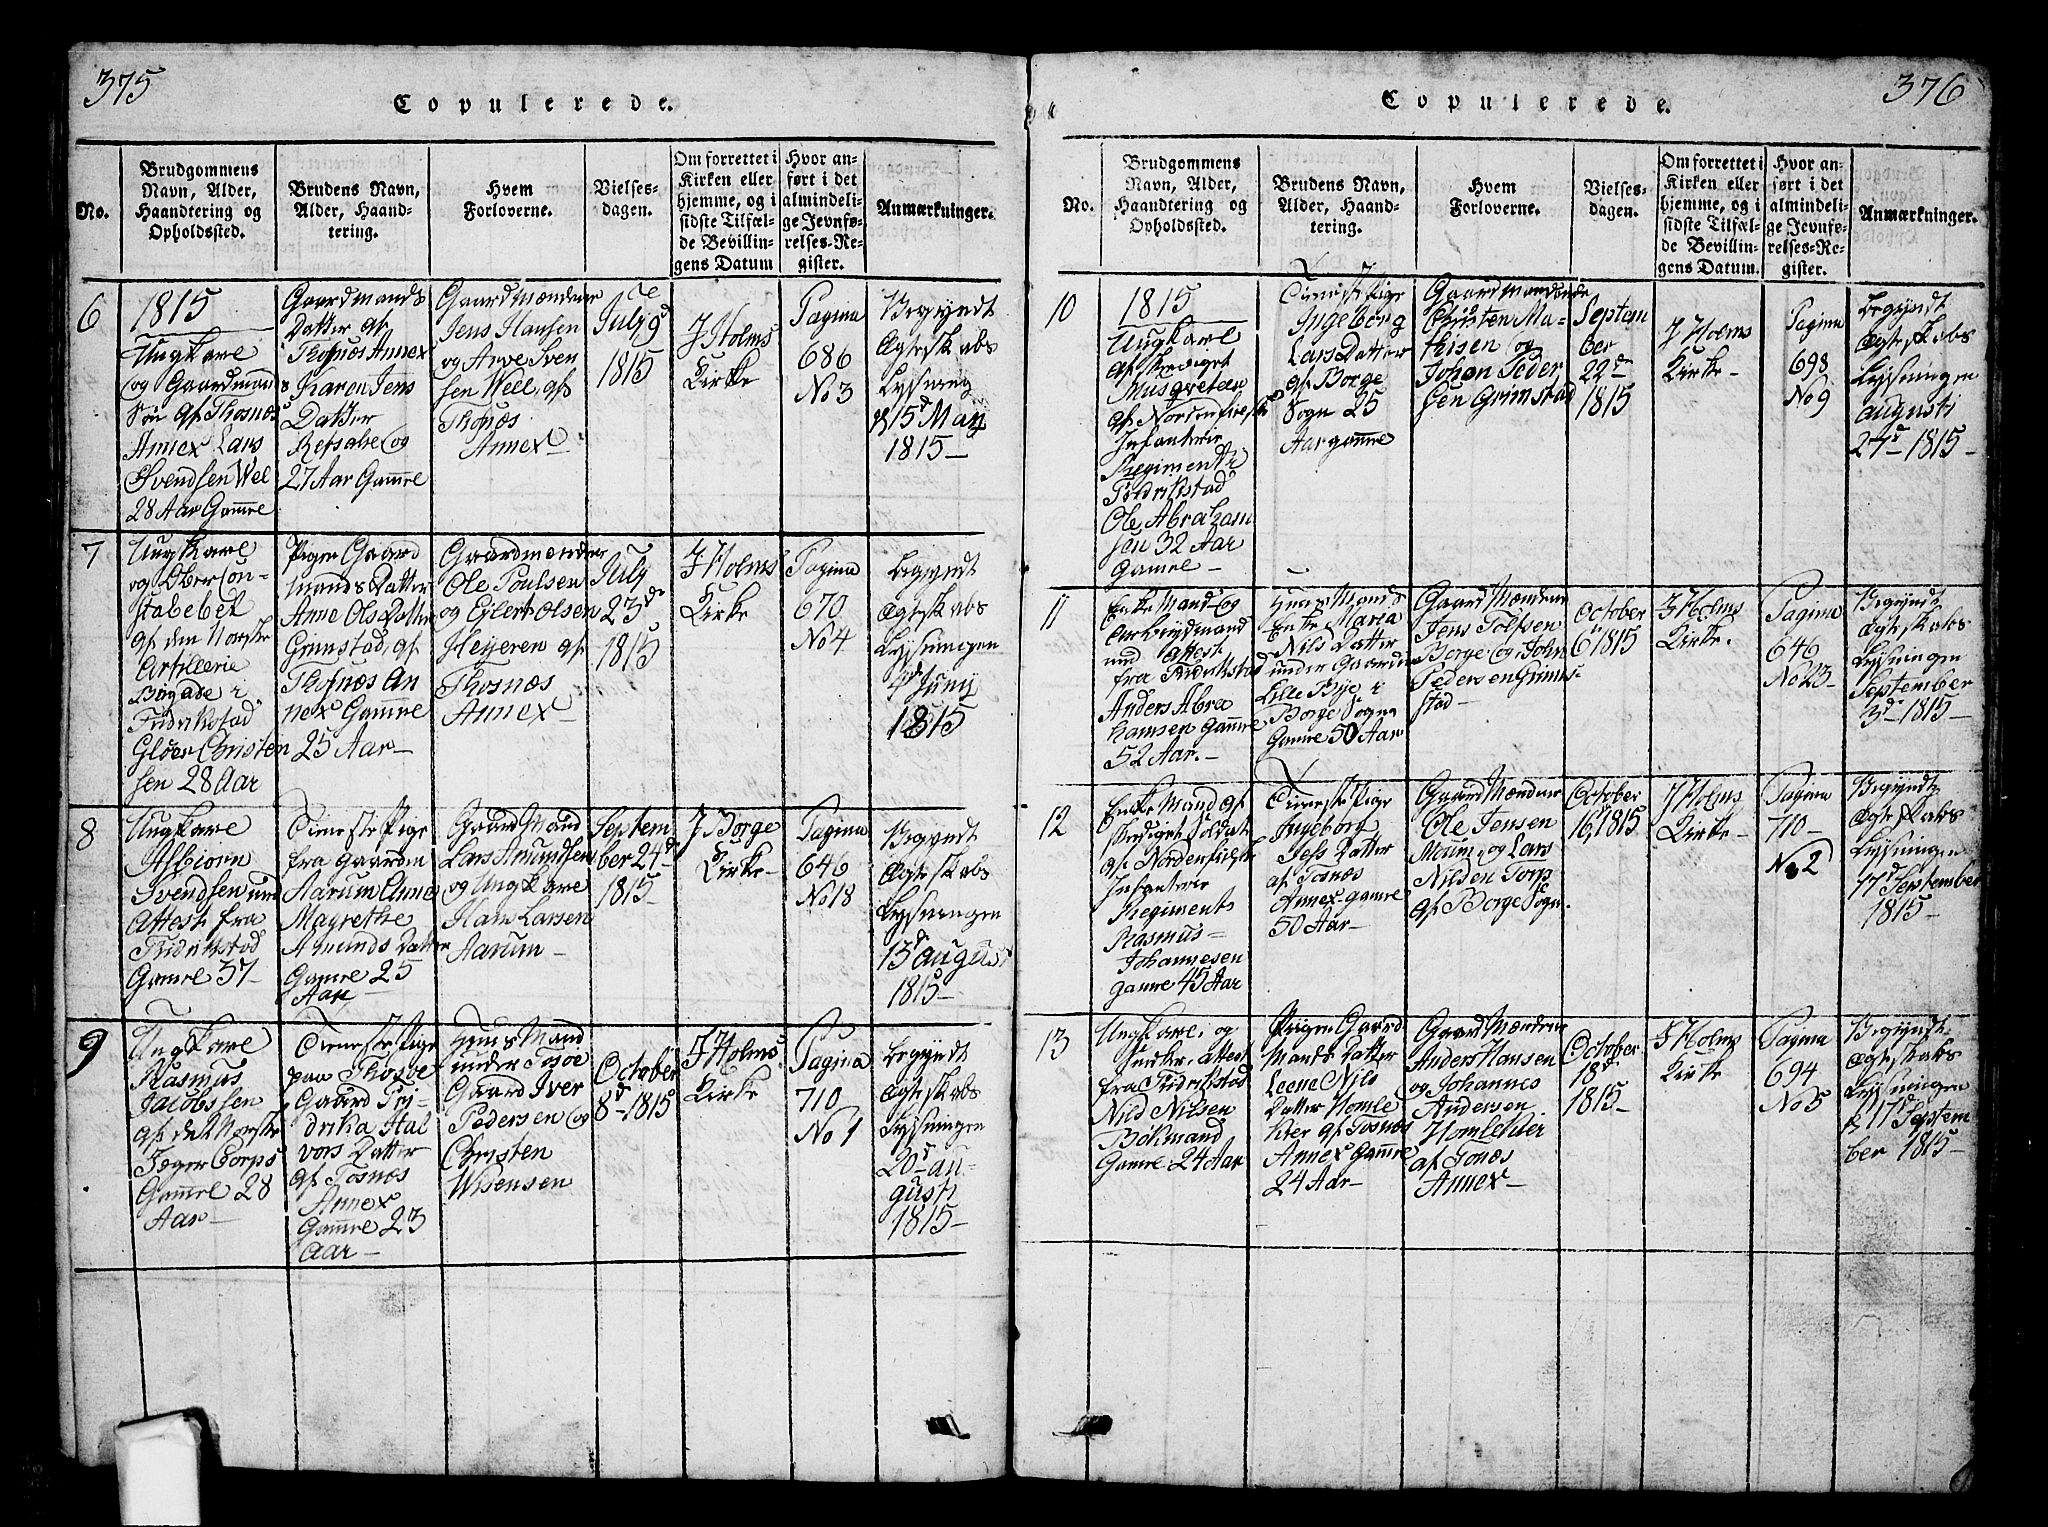 375
Copulerede.
No.
Brudgommens
Navn, Alder,
Haandtering og
Opholdssted.
Brudens Navn,
Alder, Haand-
tering.
Hvem
Forloverne.
Vielses-
dagen.
Om forrettet i
Kirken eller
hjemme, og i
sidste Tilfæl-
de Bevillin-
gens Datum
Hvor an-
ført i det
almindeli-
ge Jevnfø-
relses-Re-
gister.
Anmærkninger.
6
1815
Ungkarl
og Gaardmands
Søn af Thosnæs
Annex Lars
Svendsen Wel
28 Aar Gamle
Gaardmands
Datter af
Thosnæs Annex
Karen Jens
Datter
og
27 Aar Gamle
Gaardmændene
Jens Hansen
og Arve Sven
sen Weel, af
Thosnæs
Annex
July 9de
1815
J Holms
Kirke
Pagina
686
No 3
Begyndt
Ægteskabs
Lysning
15d May
1815
7
Ungkarl
og Ober Con-
stabebel
af den Norske
Artillerie
Brigade i
Fridrikstad
Gloer Christen
sen 28 Aar
Pigen Gaard
mands Datter
Anne Ols Datter
Grimstad, af
Thosnæs An
nex Gamle
25 Aar
Gaardmændene
Ole Poulsen
og Ejlert Olsen
Heyeren af
Thosnæs
Annex
July
23de
1815
J Holms
Kirke
Pagina
670
No 4
Begyndt
Ægteskabs
Lysningen
4d Junij
1815
8
Ungkarl
Asbiørn
Svendsen med
Attest fra
Fridrikstad
Gamle 37
Tieneste Pige
fra Gaarden
Aarum Anne
Magrethe
Amunds Datter
Gamle 25
Aar
Gaard Mand
Lars Amundsen
og Ungkarl
Hans Larsen
Aarum
Septem
ber 24d
1815
J Borge
Kirke
Pagina
646
No 18
Begyndt
Ægteskabs
Lysningen
13d august
1815
9
Ungkarl
Rasmus
Jacobsen
af det Norske
Jæger Corps
Gamle 28
Aar
Tieneste Pige
paa Thosøe
Gaard Fry-
drika Hal
vors Datter
af Tosnæs
Annex
Gamle 23
Aar
Huus Mand
under Tosøe
Gaard Iver
Pedersen og
Christen
October
8d 1815
J Holms
Kirke
Pagina
710
No 1
Begyndt
Ægteskabs
Lysningen
20d au-
gusti
1815
376
Copulerede.
No.
Brudgommens
Navn, Alder,
Haandtering og
Opholdssted.
Brudens Navn,
Alder, Haand-
tering.
Hvem
Forloverne.
Vielses-
dagen.
Om forrettet i
Kirken eller
hjemme, og i
sidste Tilfæl-
de Bevillin-
gens Datum.
Hvor an-
ført i det
almindeli-
ge Jevnfø-
relses-Re-
gister.
Anmærkninger.
10
1815
Ungkarl
afskediget
Musqveteer
af Nordenfields
Infanterie
Regiment i
Fridrikstad
Ole Abraham
sen 32 Aar
Gamle
Tieneste Pige
Ingeborg
Lars Datter
af Borge
Sogn 25
Aar gamle
Gaardmændene
Christen Ma-
thisen og
Johan Peder
sen Grimstad
Septem
ber
22d
1815
J Holms
Kirke
Pagina
698
No 9
Begyndt
Ægteskabs
Lysningen
augusti
27d 1815
11
Enke Mand og
Arbeydmand
med Attest
fra Fridrikstad
Anders Abra
hamsen Gamle
52 Aar.
Huus Mands
Enke Maria
Nils Datter
under Gaarden
Lille Bye i
Borge Sogn
Gamle 50 Aar
Gaard Mændene
Jens Tolfsen
Borge og John
Pedersen Grims-
stad
October
6d 1815
J Holms
Kirke.
Pagina
646
No 23
Begyndt
Ægteskabs
Lysningen
September
3d 1815
12
Enke Mand af
skediget Soldat
af Nordenfields
Infanterie
Regiments
Rasmus
Johannesen
gamle 45 Aar
Tieneste Pige
Ingeborg
Jens Datter
af Tosnæs
Annex gamle
50 Aar
Gaard Mændene
Ole Jensen
Moum, og Lars
Nilsen Torp
af Borge Sogn.
October
16d 1815
J Holms
Kirke
Pagina
710
No 2
Begyndt
Ægteskabs
Lysningen
17d September
1815
13
Ungkarl, og
attest
fra Fridrikstad
Nils Nilsen
Bökmand
Gamle 24 Aar
Pigen Gaard
Mands Datter
Leene Nils
Datter Homle
kier af Tosnæs
Annex Gamle
24 Aar
Gaard Mændene
Anders Hansen
og Johannes
Andersen
Homlekier
af Tosnæs
Annex
October
18d
1815
J Holms
Kirke
Pagina
694
No 5
Begyndt
Ægteskabs
Lysningen
17d Septem
ber 1815